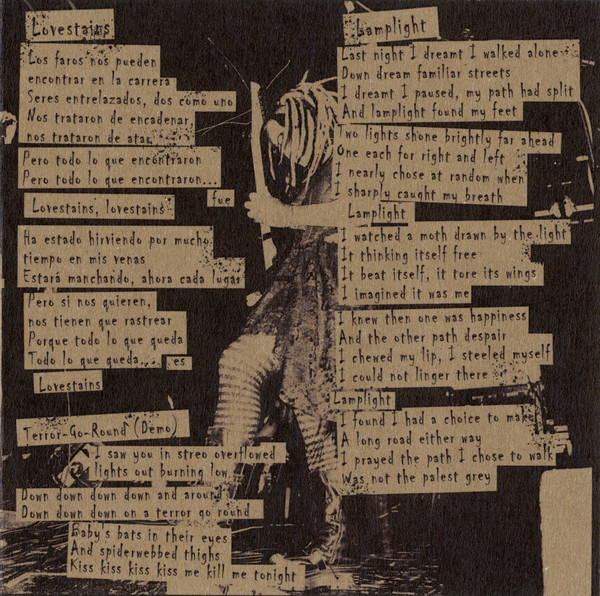 Lovestains
Los faros nos pueden
encontrar en la carrera
Seres entrelazados, dos como uno
Nos trataron de encadenar,
nos trataron de atar
Pero todo lo que encontraron
Pero todo lo que encontraron...
fue
Lovestains, lovestains
Ha estado hirviendo por mucho
tiempo en mis venas
Estará manchando, ahora cada lugar
Pero si nos quieren,
nos tienen que rastrear
Porque todo lo que queda
Todo lo que queda.... es
Lovestains
Terror-Go-Round (Demo)
I saw you in streo overflowed
lights out burning low
Down down down down and around
Down down down on a terror go round
Baby's bats in their eyes
And spiderwebbed thighs
Kiss kiss kiss kiss me kill me tonight
Lamplight
Last night I dreamt I walked alone
Down dream familiar streets
I dreamt I paused, my path had split
And lamplight found my feet
Two lights shone brightly far ahead
One each for right and left
I nearly chose at random when
I sharply caught my breath
Lamplight
I watched a moth drawn by the light
It thinking itself free
It beat itself, it tore its wings
I imagined it was me
I knew then one was happiness
And the other path despair
I chewed my lip, I steeled myself
I could not linger there
Lamplight
I found I had a choice to make
A long road either way
I prayed the path I chose to walk
Was not the palest grey